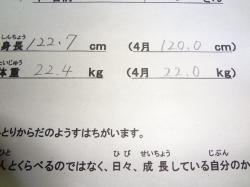 しんちょう
身長 122.7 cm (4月 120.0 cm)
たいじゅう
体重 22.4 kg (4月 22.0 kg)
とりからだのようすはちがいます。
ひと ひび せいちょう じぶん
人とくらべるのではなく、日々、成長している自分のか